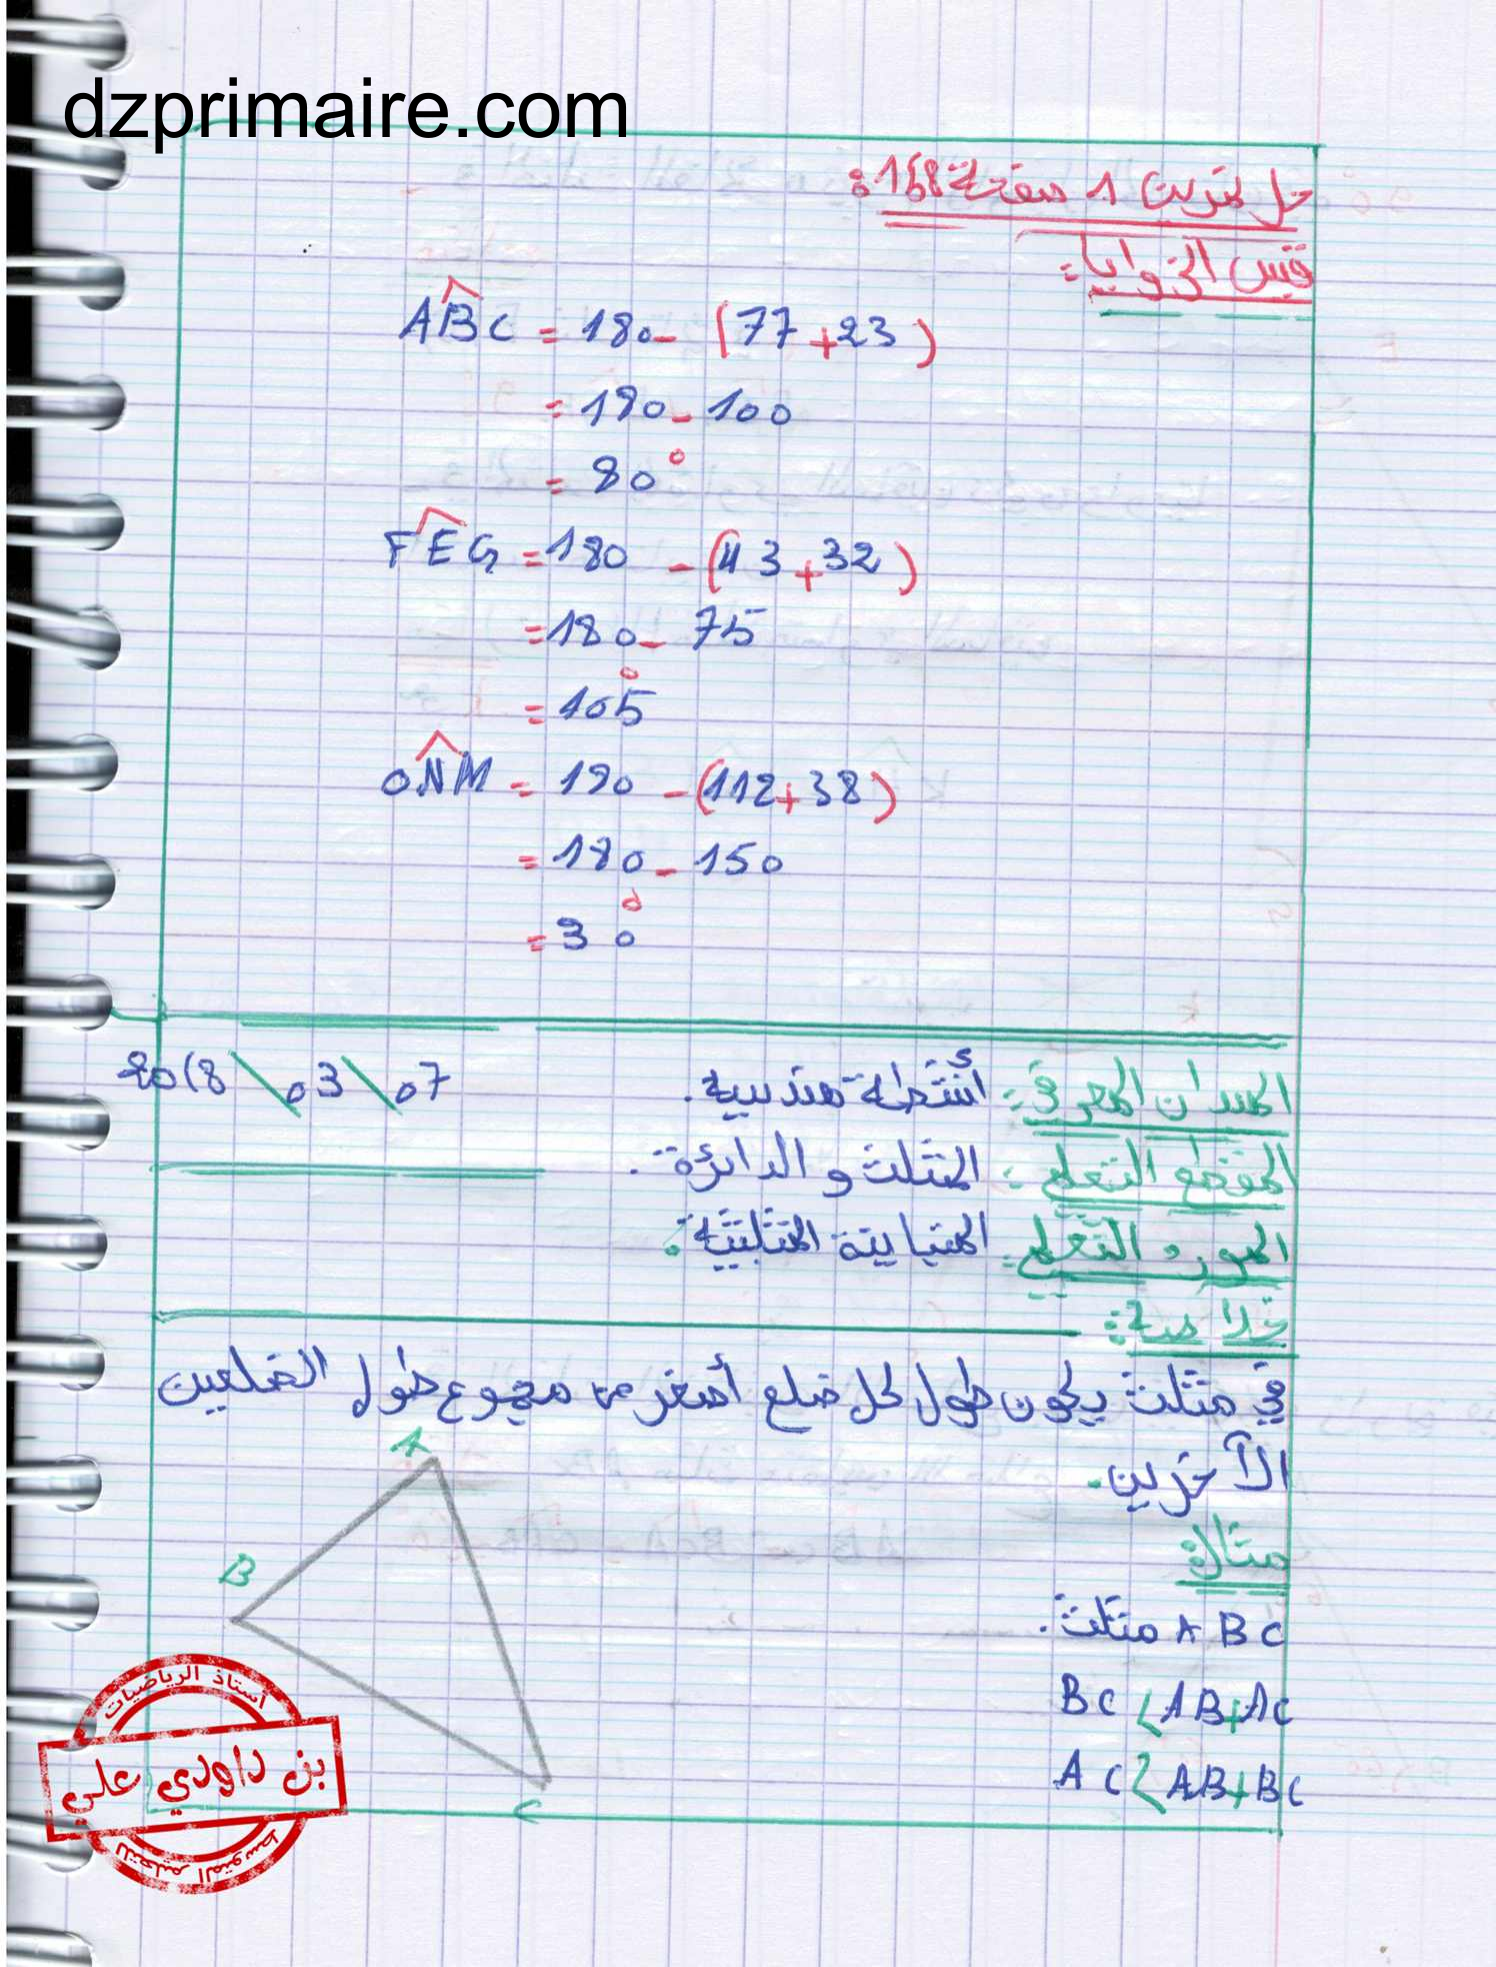 dzprimaire.com
حل تمرين 1 صفحة 168:
قيس الزوايا:
ABC = 180 - (77+23)
= 180 - 100
= 80°
FEG = 180 - (43+32)
= 180 - 75
= 105°
ONM = 180 - (112+38)
= 180 - 150
= 30°
الميدان المعرفي: أنشطة هندسية. 07\03\2018
المقطع التعلمي: المثلث و الدائرة.
المورد التعلمي: المتباينة المثلثية:
خلاصة:
في مثلث يكون طول كل ضلع أصغر من مجموع طول الضلعين
الآخرين.
مثال:
ABC مثلث.
BC < AB+AC
AC < AB+BC
A
B
C
أستاذ الرياضيات
بن داودي علي
للتعليم المتوسط